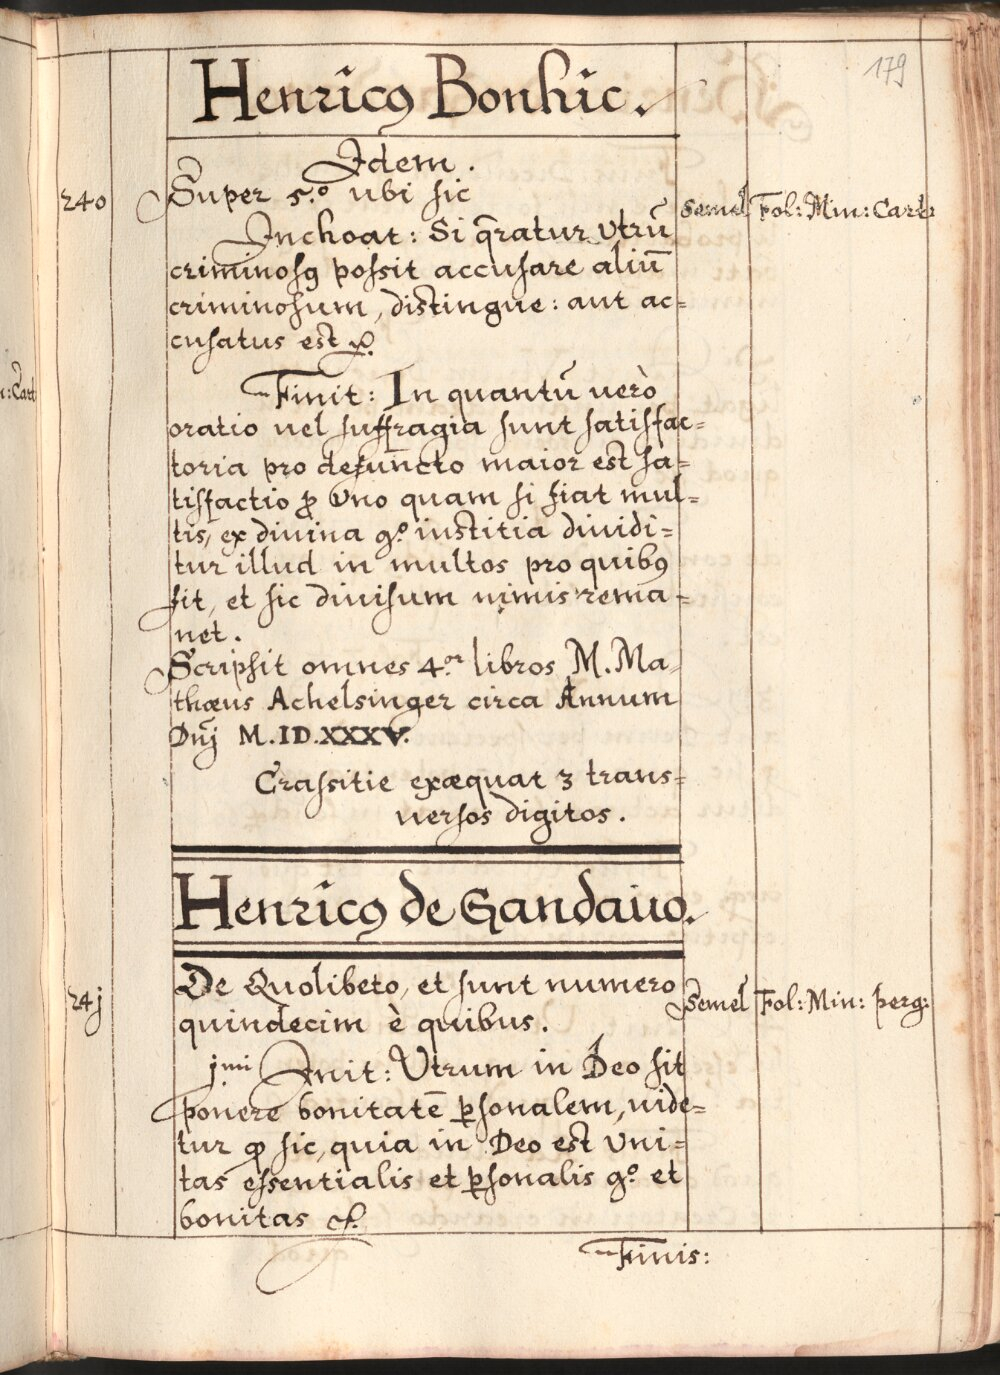 179
Henricꝰ Bonhic.
Idem.
240 Super 5.º ubi sic semel Fol: Min: Cart:
Inchoat: Si q̄ratur vtrū
criminosꝰ possit accusare aliū
criminosum, distingue: aut ac=
cusatus est ꝛc.
n: Cart
Finit: In quantū verò
oratio vel suffragia sunt satisfac=
toria pro defuncto maior est sa=
tisfactio ꝓ vno quam si fiat mul=
tis, ex divina g.º iustitia dividi=
tur illud in multos pro quibꝰ
fit, et sic divisum nimis rema=
net.
Scripsit omnes 4.or libros M. Ma=
thæus Achelsinger circa Annum
Dnj M.ID.XXXV.
Crassitie exæquat 3 trans=
versos digitos.
Henricꝰ de Gandauo.
24j De Quolibeto, et sunt numero semel Fol: Min: perg:
quindecim è quibus.
j.mi Init: Vtrum in Deo sit
ponere bonitatē ꝑsonalem, vide=
tur ꝙ sic, quia in Deo est vni=
tas essentialis et ꝑsonalis g.º et
bonitas ꝛc.
Finis: